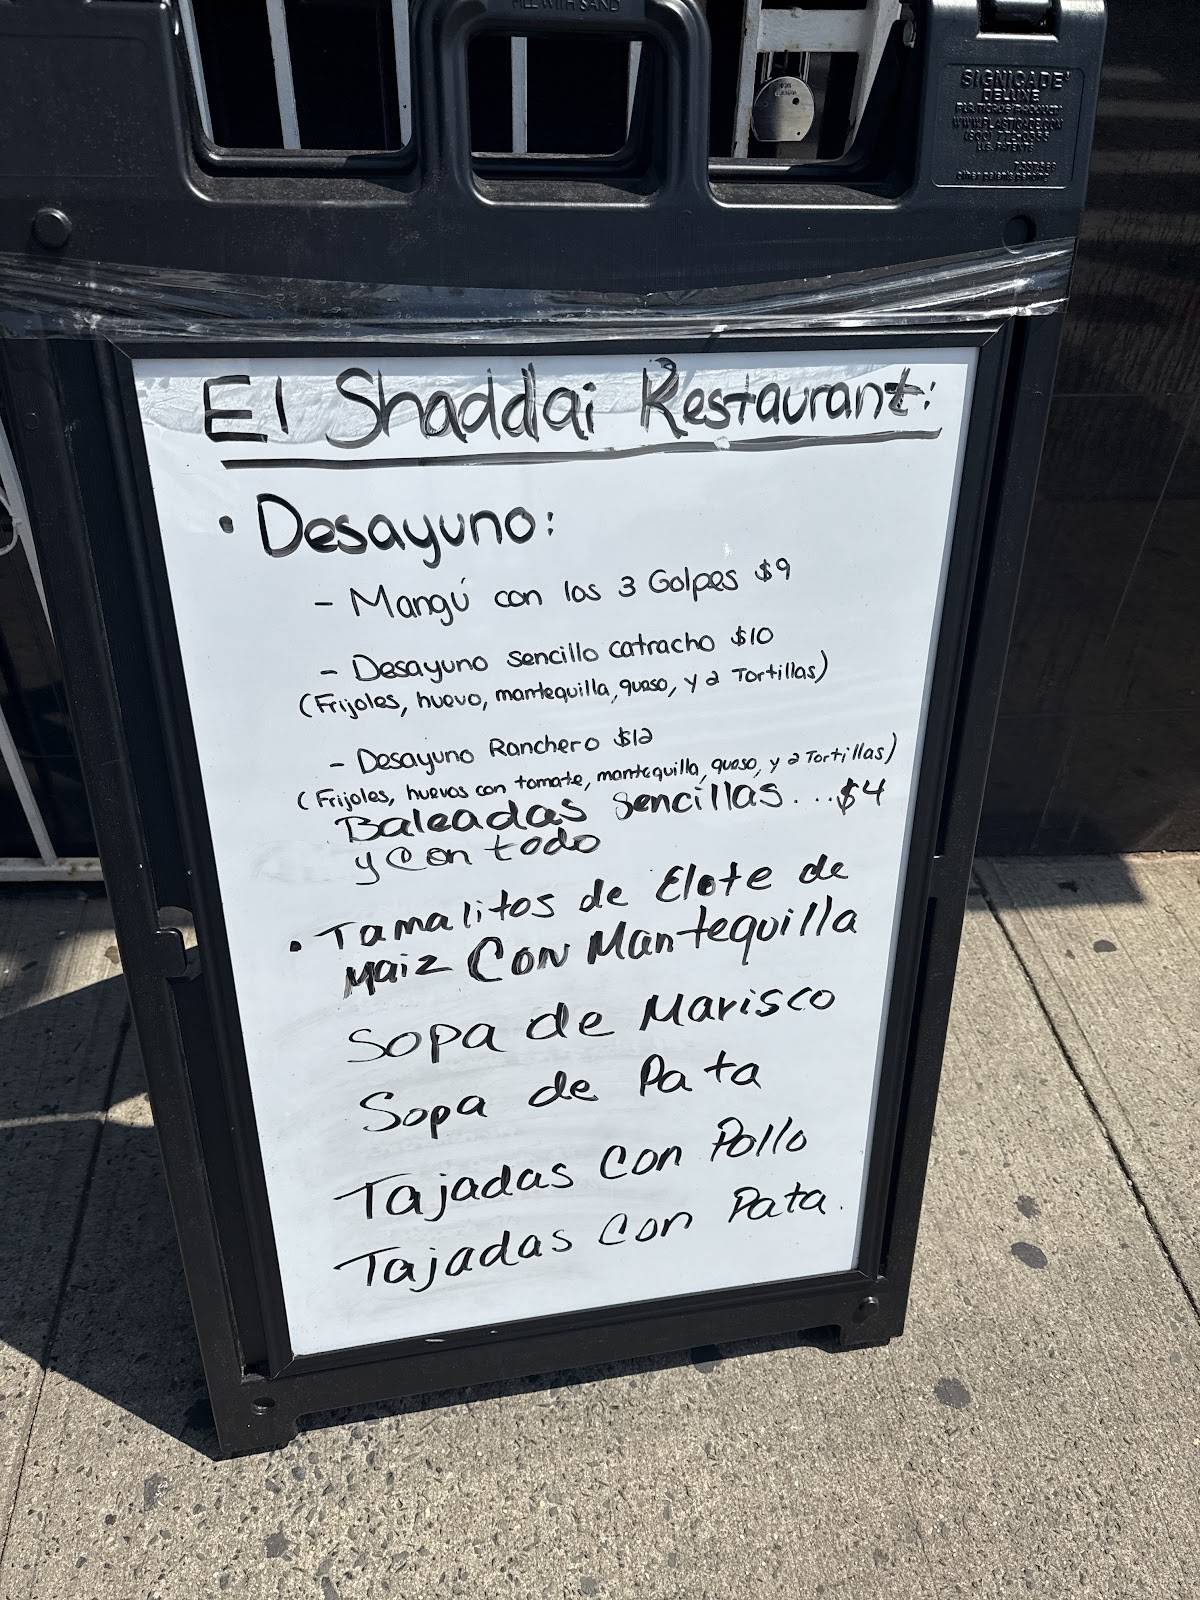 FILL WITH SAND
SIGNICADE
DELUXE
El Shaddai Restaurant:
• Desayuno:
- Mangú con los 3 Golpes $9
- Desayuno sencillo catracho $10
(Frijoles, huevo, mantequilla, queso, y 2 Tortillas)
- Desayuno Ranchero $12
(Frijoles, huevos con tomate, mantequilla, queso, y 2 Tortillas)
Baleadas sencillas...$4
y Con todo
• Tamalitos de Elote de
Maiz Con Mantequilla
Sopa de Marisco
Sopa de Pata
Tajadas Con Pollo
Tajadas Con Pata.